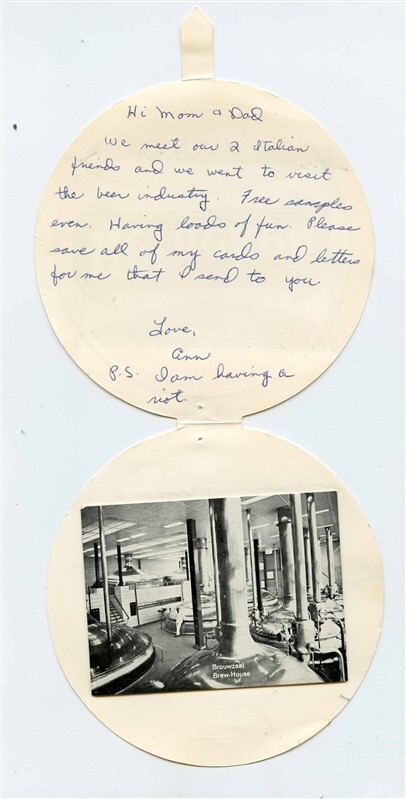 Hi Mom & Dad
We meet our 2 Italian
friends and we went to visit
the beer industry. Free samples
even. Having loads of fun. Please
save all of my cards and letters
for me that I send to you.
Love,
Ann
P.S. I am having a
riot.
Brouwzaal
Brew-House